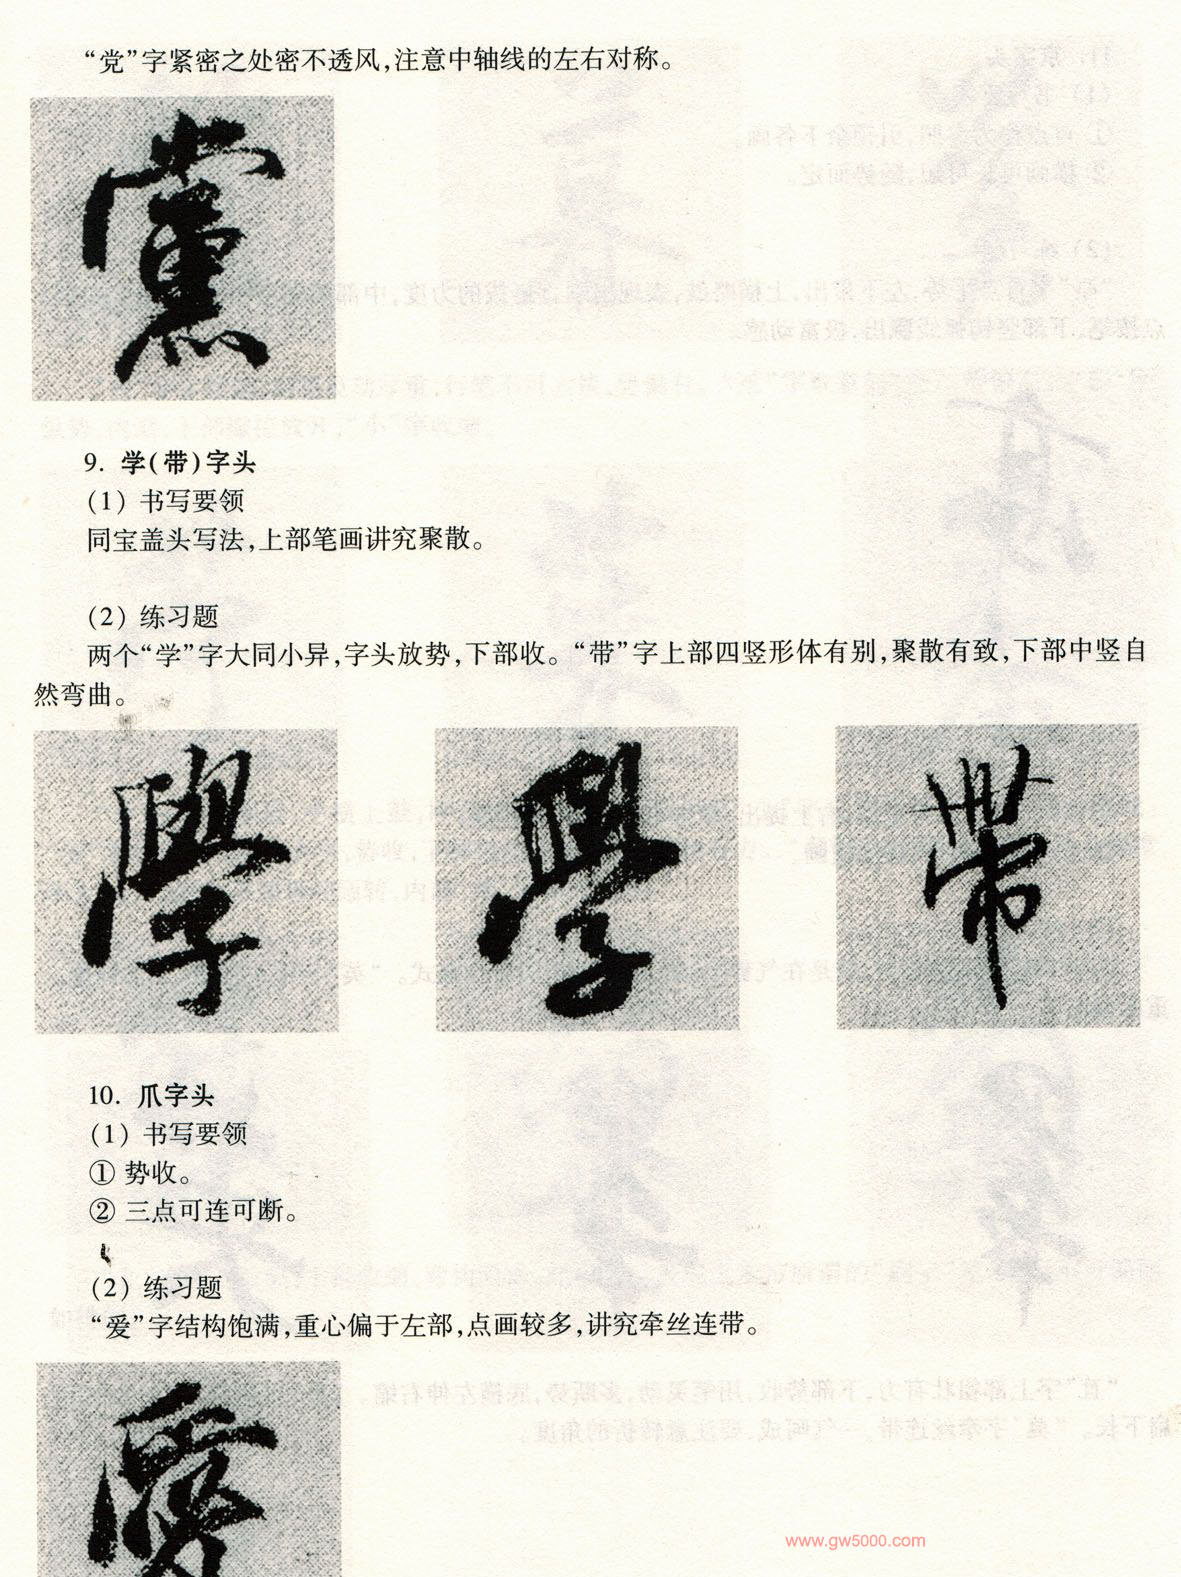 “党”字紧密之处密不透风，注意中轴线的左右对称。
黨
9. 学(带)字头
(1) 书写要领
同宝盖头写法，上部笔画讲究聚散。
(2) 练习题
两个“学”字大同小异，字头放势，下部收。“带”字上部四竖形体有别，聚散有致，下部中竖自
然弯曲。
學 學 帶
10. 爪字头
(1) 书写要领
① 势收。
② 三点可连可断。
(2) 练习题
“爱”字结构饱满，重心偏于左部，点画较多，讲究牵丝连带。
愛
www.gw5000.com